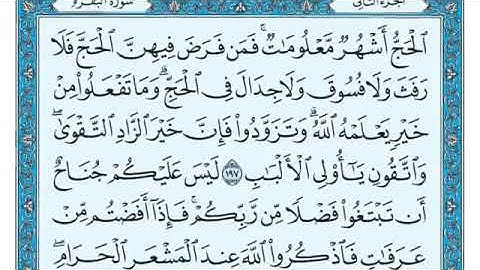 الجزء الثاني سورة البقرة
ٱلْحَجُّ أَشْهُرٌ مَّعْلُومَٰتٌ ۚ فَمَن فَرَضَ فِيهِنَّ ٱلْحَجَّ فَلَا
رَفَثَ وَلَا فُسُوقَ وَلَا جِدَالَ فِى ٱلْحَجِّ ۗ وَمَا تَفْعَلُوا۟ مِنْ
خَيْرٍ يَعْلَمْهُ ٱللَّهُ ۗ وَتَزَوَّدُوا۟ فَإِنَّ خَيْرَ ٱلزَّادِ ٱلتَّقْوَىٰ ۖ
وَٱتَّقُونِ يَٰٓأُو۟لِى ٱلْأَلْبَٰبِ ١٩٧ لَيْسَ عَلَيْكُمْ جُنَاحٌ
أَن تَبْتَغُوا۟ فَضْلًا مِّن رَّبِّكُمْ ۚ فَإِذَآ أَفَضْتُم مِّنْ
عَرَفَٰتٍ فَٱذْكُرُوا۟ ٱللَّهَ عِندَ ٱلْمَشْعَرِ ٱلْحَرَامِ ۖ